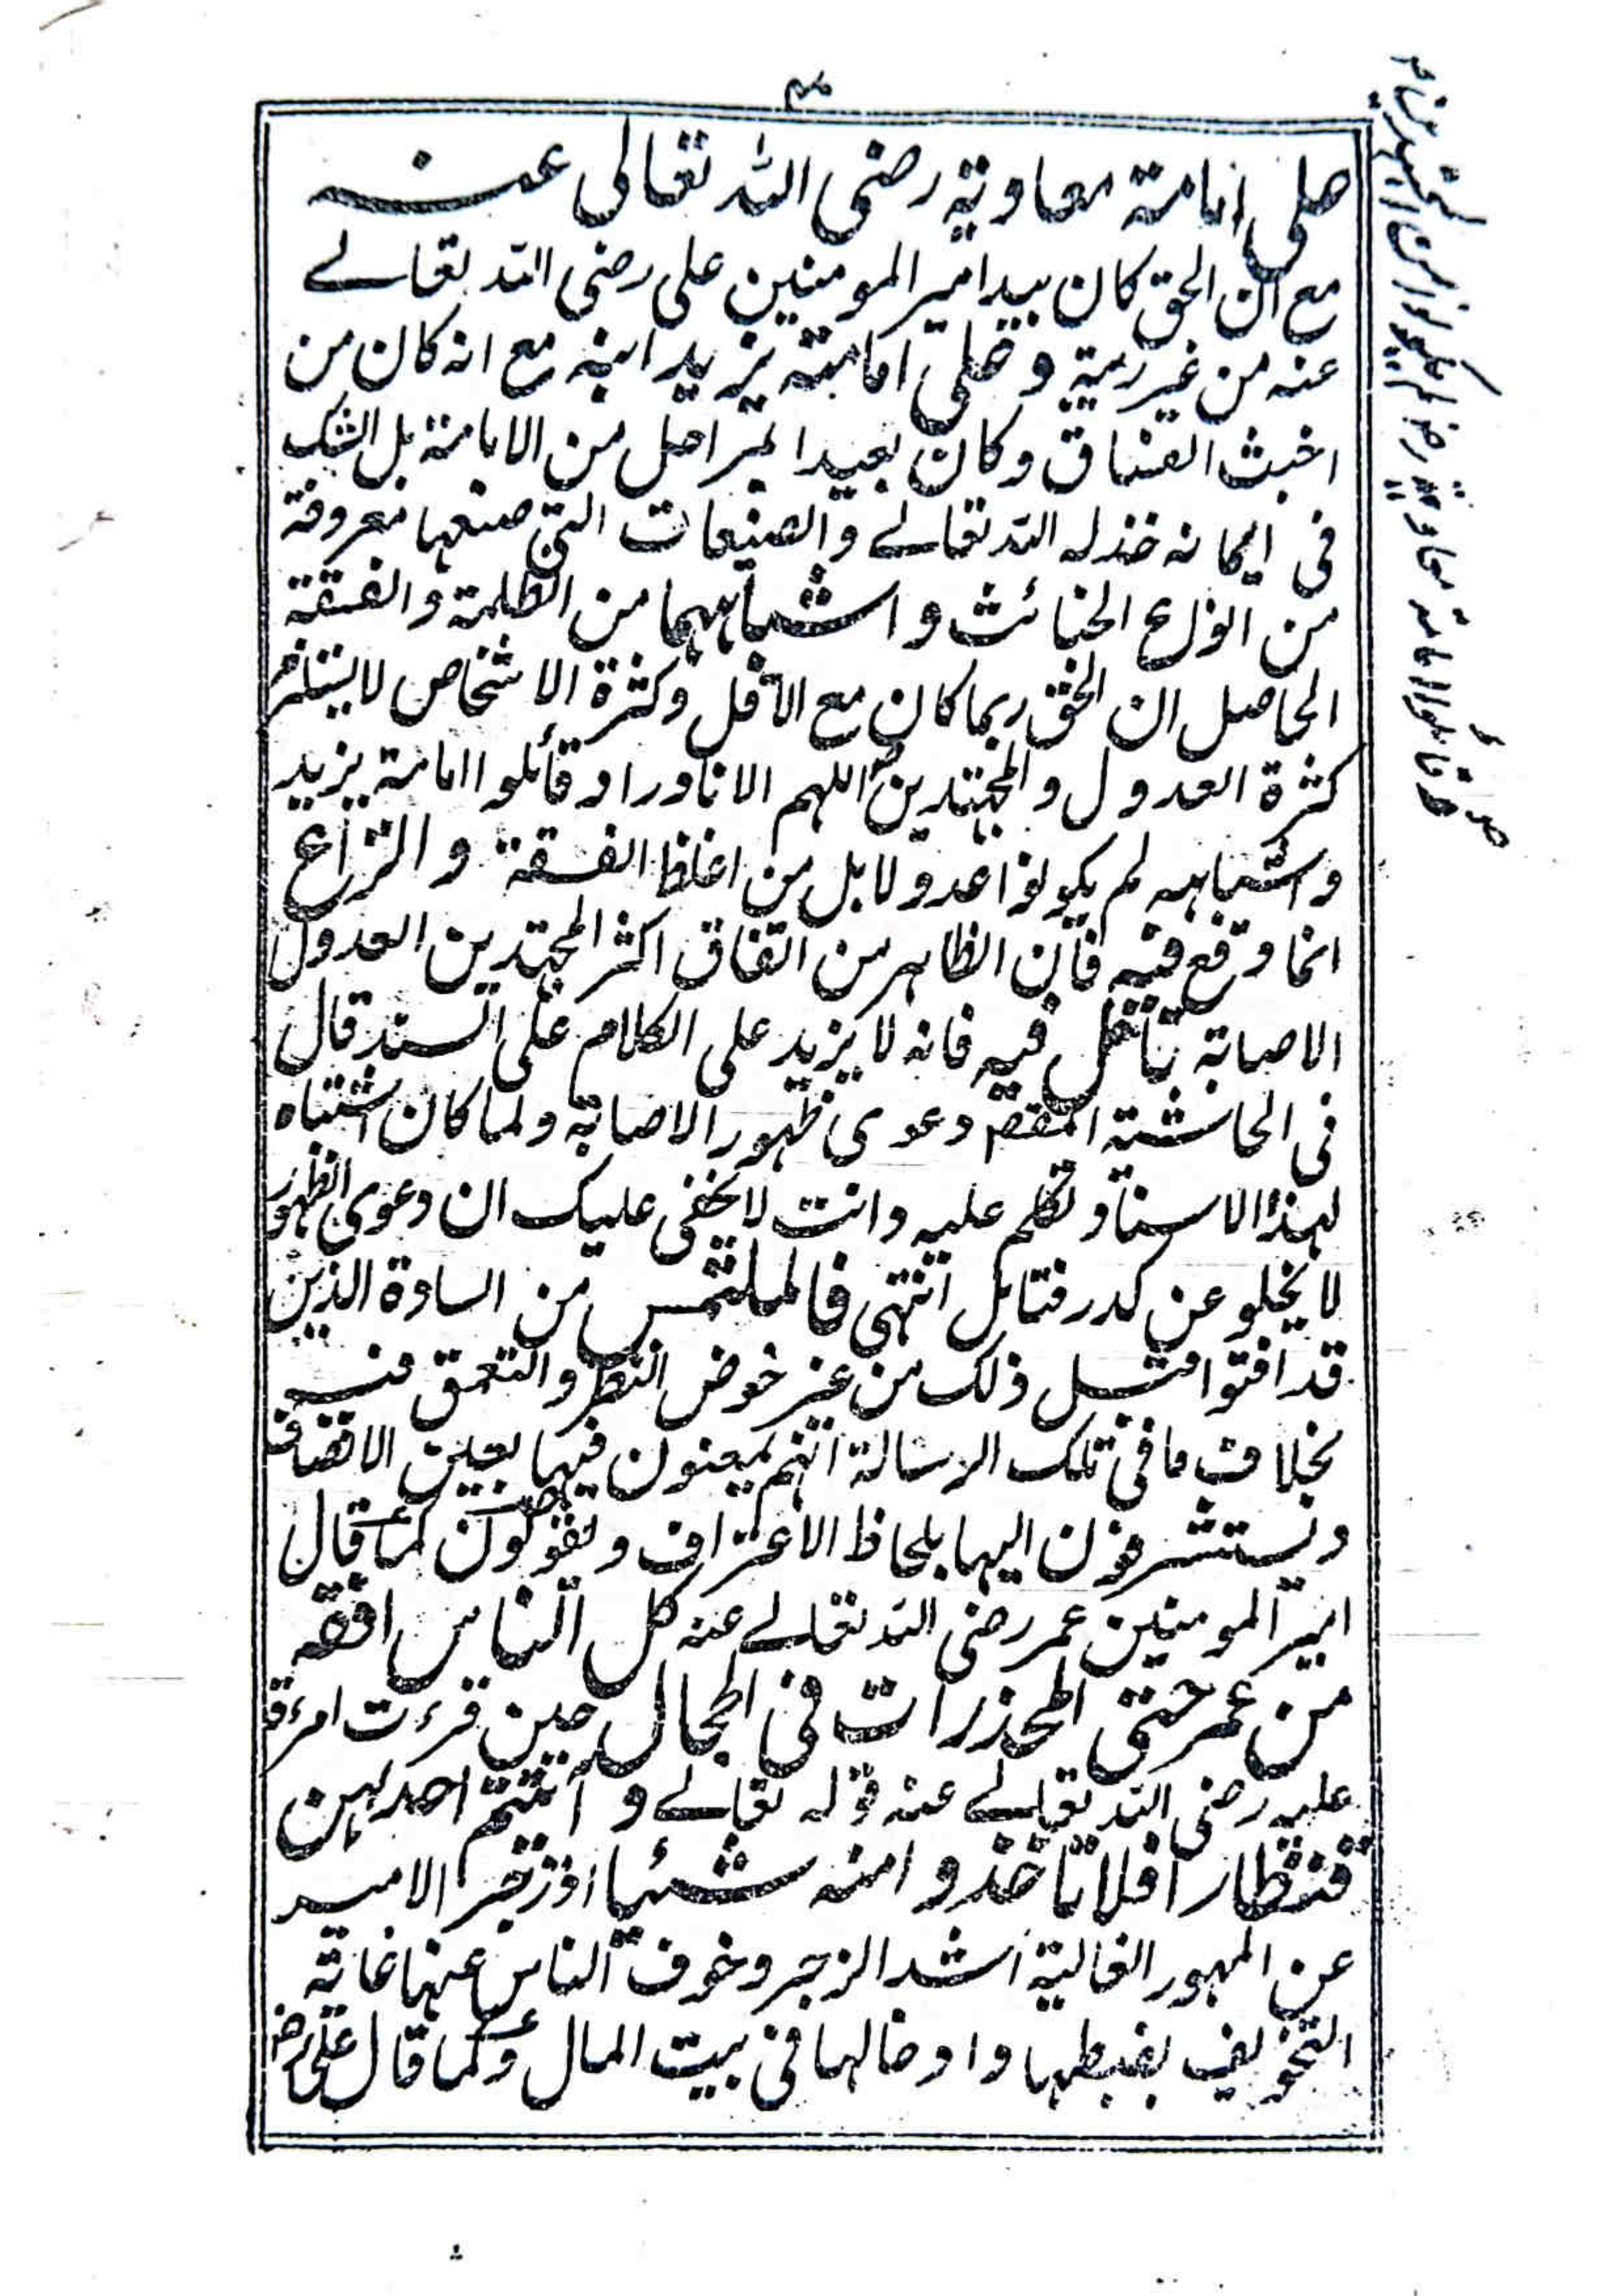 على امامة معاوية رضى الله تعالى عنه
مع ان الحق كان بيد امير المومنين على رضى الله تعالے
عنه من غير رية و على امامة يزيد ابنه مع انه كان من
اخبث الفساق و كان بعيدا لمراحل من الامامة بل الشك
فى ايمانه خذله الله تعالے والصنيعات التى صنعها معروفة
من انواع الخبائث و اشباههما من الظلمة والفسقة
الحاصل ان الحق ربما كان مع الاقل وكثرة الاشخاص لا يستلزم
كثرة العدول والمجتهدين اللهم الا نادرا و قائلوا امامة يزيد
واشباهه لم يكونوا عدولا بل من اغلظ الفسقة و النزاع
انما وقع فيه فان الظاهر من اتفاق اكثر المجتهدين العدول
الاصابة تأمل فيه فانه لا يزيد على الكلام على السند قال
فى الحاشية المقصم دعوى ظهور الاصابة ولما كان اشتباه
لهذا الاسناد تكلم عليه وانت لا يخفى عليك ان دعوى الظهور
لا يخلو عن كدر فتامل انتهى فالملتمس من السادة الذين
قد افتوا قبل ذلك من غير خوض النظر والتعمق فيه
بخلاف ما فى تلك الرسالة انهم يمعنون فيها بعين الانصاف
ويستشرفون اليها بلحاظ الاعتراف و يقولون كما قال
امير المومنين عمر رضى الله تعالے عنه كل الناس افقه
من عمر حتى المخدرات فى الحجال حين قرءت امرءة
عليه رضى الله تعالے عنه قوله تعالے و آتيتم احدٰهن
قنطارا فلا تاخذوا منه شيئا اذ زجر الامير
عن المهور الغالية اشد الزجر وخوف الناس عنها غاية
التخويف بضبطها وادخالها فى بيت المال و كما قال على رض